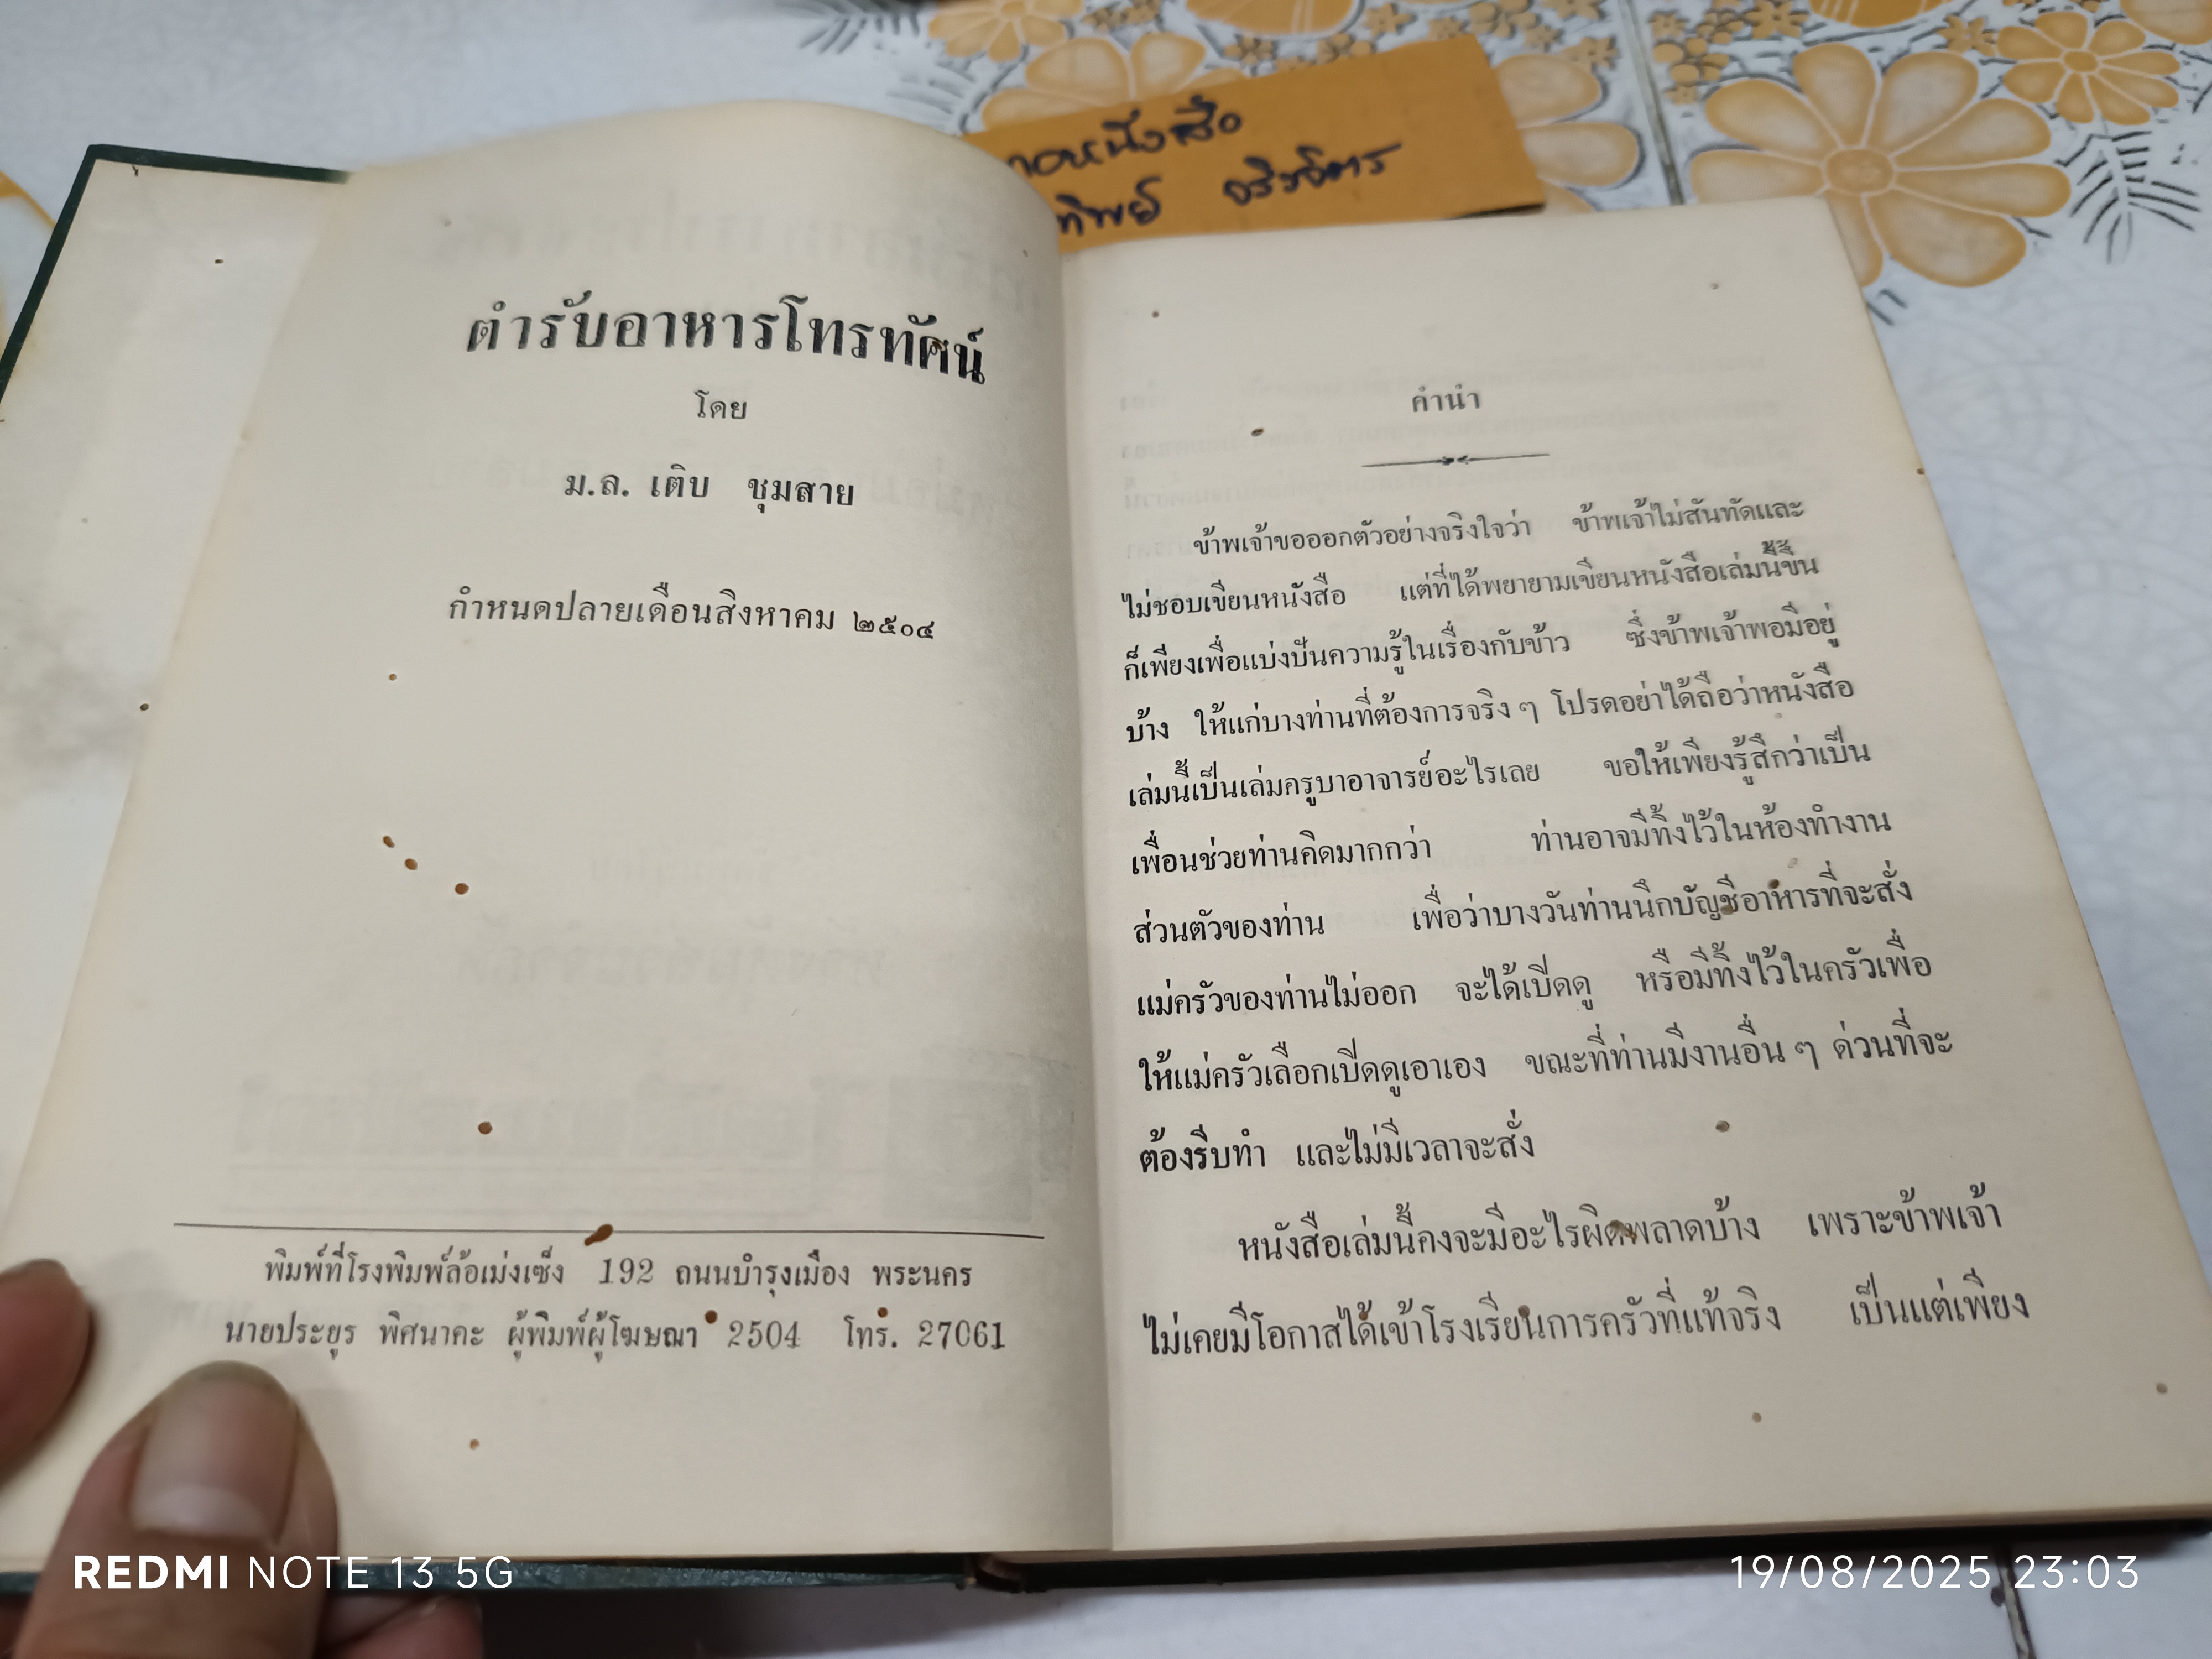 ตำรับอาหารโทรทัศน์
โดย
ม.ล. เติบ ชุมสาย
กำหนดปลายเดือนสิงหาคม ๒๕๐๔
พิมพ์ที่โรงพิมพ์ล้อเม่งเซ็ง 192 ถนนบำรุงเมือง พระนคร
นายประยูร พิศนาคะ ผู้พิมพ์ผู้โฆษณา 2504 โทร. 27061
คำนำ
ข้าพเจ้าขอออกตัวอย่างจริงใจว่า ข้าพเจ้าไม่สันทัดและ
ไม่ชอบเขียนหนังสือ แต่ที่ได้พยายามเขียนหนังสือเล่มนี้ขึ้น
ก็เพียงเพื่อแบ่งปันความรู้ในเรื่องกับข้าว ซึ่งข้าพเจ้าพอมีอยู่
บ้าง ให้แก่บางท่านที่ต้องการจริง ๆ โปรดอย่าได้ถือว่าหนังสือ
เล่มนี้เป็นเล่มครูบาอาจารย์อะไรเลย ขอให้เพียงรู้สึกว่าเป็น
เพื่อนช่วยท่านคิดมากกว่า ท่านอาจมีทิ้งไว้ในห้องทำงาน
ส่วนตัวของท่าน เพื่อว่าบางวันท่านนึกบัญชีอาหารที่จะสั่ง
แม่ครัวของท่านไม่ออก จะได้เปิดดู หรือมีทิ้งไว้ในครัวเพื่อ
ให้แม่ครัวเลือกเปิดดูเอาเอง ขณะที่ท่านมีงานอื่น ๆ ด่วนที่จะ
ต้องรีบทำ และไม่มีเวลาจะสั่ง
หนังสือเล่มนี้คงจะมีอะไรผิดพลาดบ้าง เพราะข้าพเจ้า
ไม่เคยมีโอกาสได้เข้าโรงเรียนการครัวที่แท้จริง เป็นแต่เพียง
REDMI NOTE 13 5G
19/08/2025 23:03